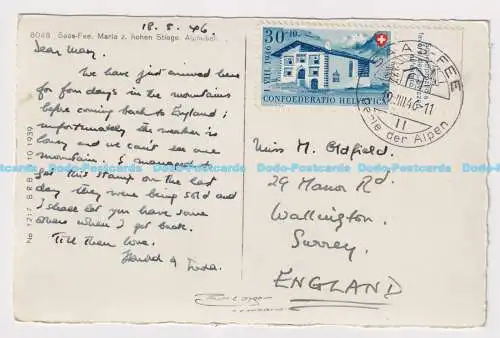 18. 8. 46.
8048 Saas-Fee, Maria z. hohen Stiege, Alphubel
Dear Mary,
We have just arrived here
for four days in the mountains
before coming back to England;
unfortunately the weather is
lousy and we can't see one
mountain. I managed to
get this stamp on the last
day they were being sold and
I shall let you have some
others when I get back.
Till then love.
Harold &
No 1217 B R B 3.10 1939
30+10
1 VIII 1946
CONFOEDERATIO HELVETICA
SAAS-FEE
VIII.46-11
Perle der Alpen
Miss M. Oldfield,
29 Manor Rd.
Wallington.
Surrey.
ENGLAND
Dodo-Postcards Dodo-Postcards Dodo-Postcards